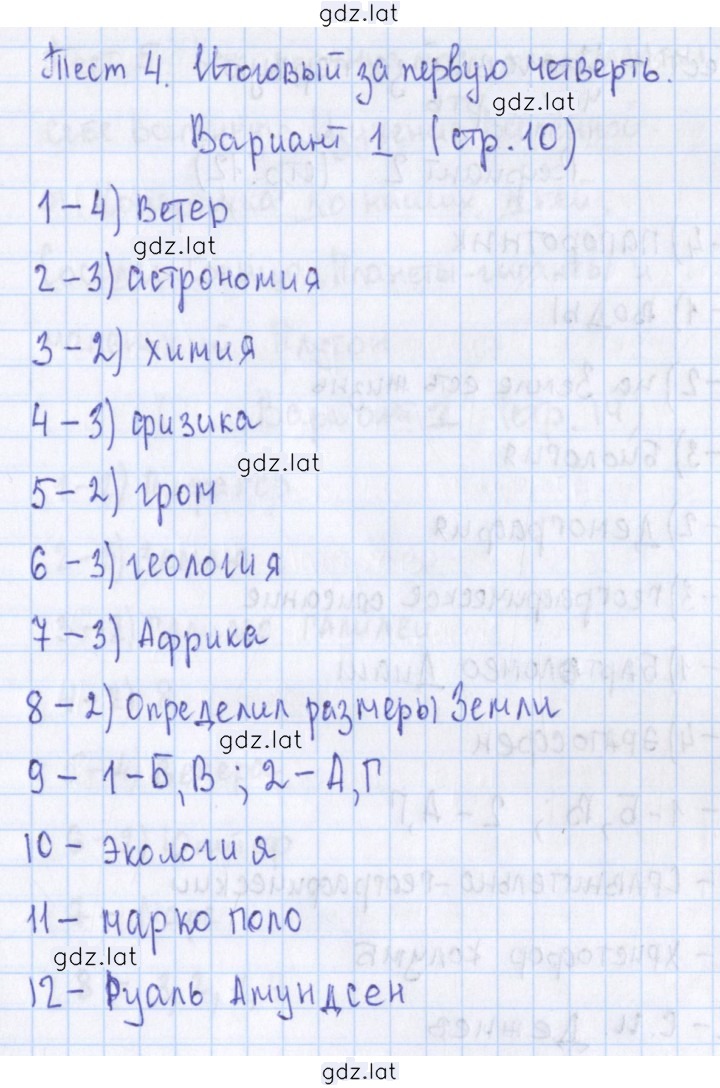 gdz.lat
Тест 4. Итоговый за первую четверть.
gdz.lat
Вариант 1 (стр.10)
1 – 4) Ветер
gdz.lat
2 – 3) астрономия
3 – 2) химия
4 – 3) физика
gdz.lat
5 – 2) гром
6 – 3) геология
7 – 3) Африка
8 – 2) Определил размеры Земли
gdz.lat
9 – 1 – Б, В ; 2 – А, Г
10 – Экология
11 – марко поло
gdz.lat
12 – Руаль Амундсен
gdz.lat